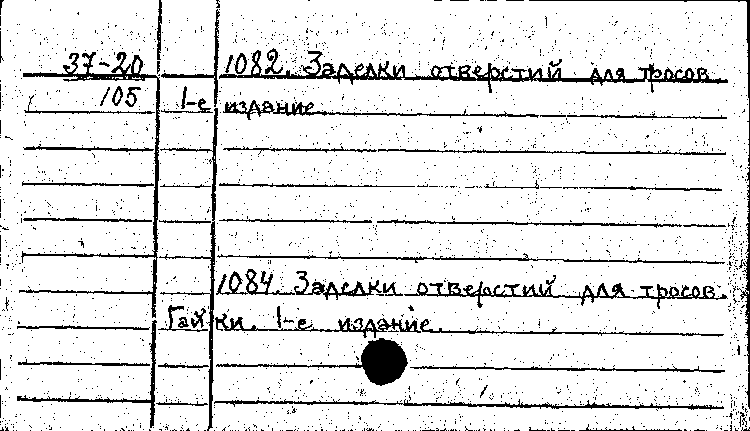 37-20 1082. Заделки отверстий для тросов
105 1-е издание.
1084. Заделки отверстий для тросов.
Гайки. 1-е издание.